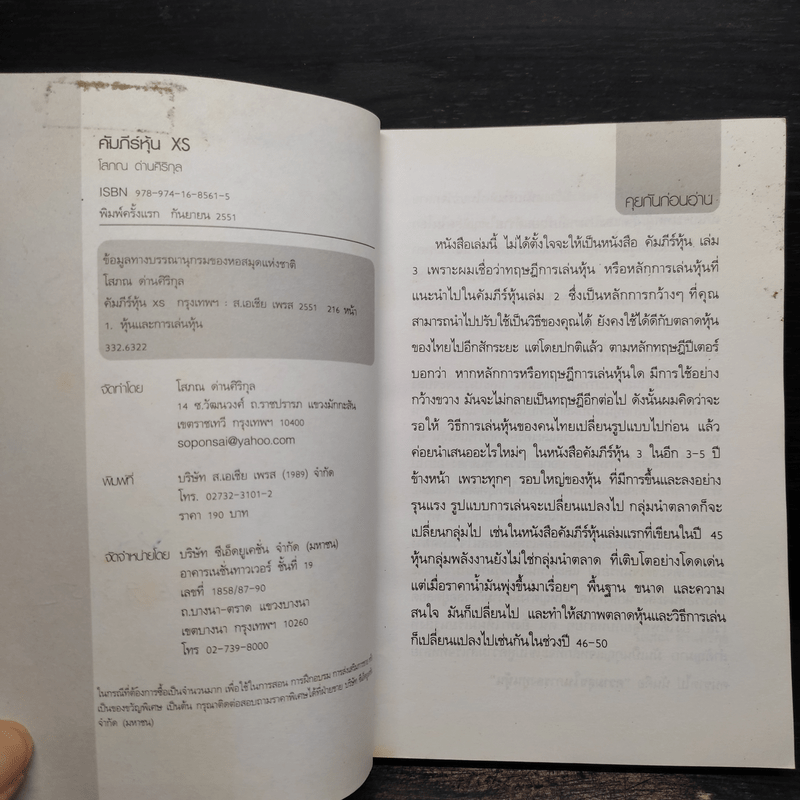 คัมภีร์หุ้น XS
โสภณ ด่านศิริกุล
ISBN 978-974-16-8561-5
พิมพ์ครั้งแรก กันยายน 2551
ข้อมูลทางบรรณานุกรมของหอสมุดแห่งชาติ
โสภณ ด่านศิริกุล
คัมภีร์หุ้น XS กรุงเทพฯ : ส.เอเซีย เพรส 2551 216 หน้า
1. หุ้นและการเล่นหุ้น
332.6322
จัดทำโดย โสภณ ด่านศิริกุล
14 ซ.วัฒนวงศ์ ถ.ราชปรารภ แขวงมักกะสัน
เขตราชเทวี กรุงเทพฯ 10400
soponsai@yahoo.com
พิมพ์ที่ บริษัท ส.เอเซีย เพรส (1989) จำกัด
โทร. 02732-3101-2
ราคา 190 บาท
จัดจำหน่ายโดย บริษัท ซีเอ็ดยูเคชั่น จำกัด (มหาชน)
อาคารเนชั่นทาวเวอร์ ชั้นที่ 19
เลขที่ 1858/87-90
ถ.บางนา-ตราด แขวงบางนา
เขตบางนา กรุงเทพฯ 10260
โทร 02-739-8000
ในกรณีที่ต้องการซื้อเป็นจำนวนมาก เพื่อใช้ในการสอน การฝึกอบรม การส่งเสริมการขาย
เป็นของขวัญพิเศษ เป็นต้น กรุณาติดต่อสอบถามราคาพิเศษได้ที่ฝ่ายขาย บริษัท
จำกัด (มหาชน)
คุยกันก่อนอ่าน
หนังสือเล่มนี้ ไม่ได้ตั้งใจจะให้เป็นหนังสือ คัมภีร์หุ้น เล่ม
3 เพราะผมเชื่อว่าทฤษฎีการเล่นหุ้น หรือหลักการเล่นหุ้นที่
แนะนำไปในคัมภีร์หุ้นเล่ม 2 ซึ่งเป็นหลักการกว้างๆ ที่คุณ
สามารถนำไปปรับใช้เป็นวิธีของคุณได้ ยังคงใช้ได้ดีกับตลาดหุ้น
ของไทยไปอีกสักระยะ แต่โดยปกติแล้ว ตามหลักทฤษฎีปีเตอร์
บอกว่า หากหลักการหรือทฤษฎีการเล่นหุ้นใด มีการใช้อย่าง
กว้างขวาง มันจะไม่กลายเป็นทฤษฎีอีกต่อไป ดังนั้นผมคิดว่าจะ
รอให้ วิธีการเล่นหุ้นของคนไทยเปลี่ยนรูปแบบไปก่อน แล้ว
ค่อยนำเสนออะไรใหม่ๆ ในหนังสือคัมภีร์หุ้น 3 ในอีก 3-5 ปี
ข้างหน้า เพราะทุกๆ รอบใหญ่ของหุ้น ที่มีการขึ้นและลงอย่าง
รุนแรง รูปแบบการเล่นจะเปลี่ยนแปลงไป กลุ่มนำตลาดก็จะ
เปลี่ยนกลุ่มไป เช่นในหนังสือคัมภีร์หุ้นเล่มแรกที่เขียนในปี 45
หุ้นกลุ่มพลังงานยังไม่ใช่กลุ่มนำตลาด ที่เติบโตอย่างโดดเด่น
แต่เมื่อราคาน้ำมันพุ่งขึ้นมาเรื่อยๆ พื้นฐาน ขนาด และความ
สนใจ มันก็เปลี่ยนไป และทำให้สภาพตลาดหุ้นและวิธีการเล่น
ก็เปลี่ยนแปลงไปเช่นกันในช่วงปี 46-50